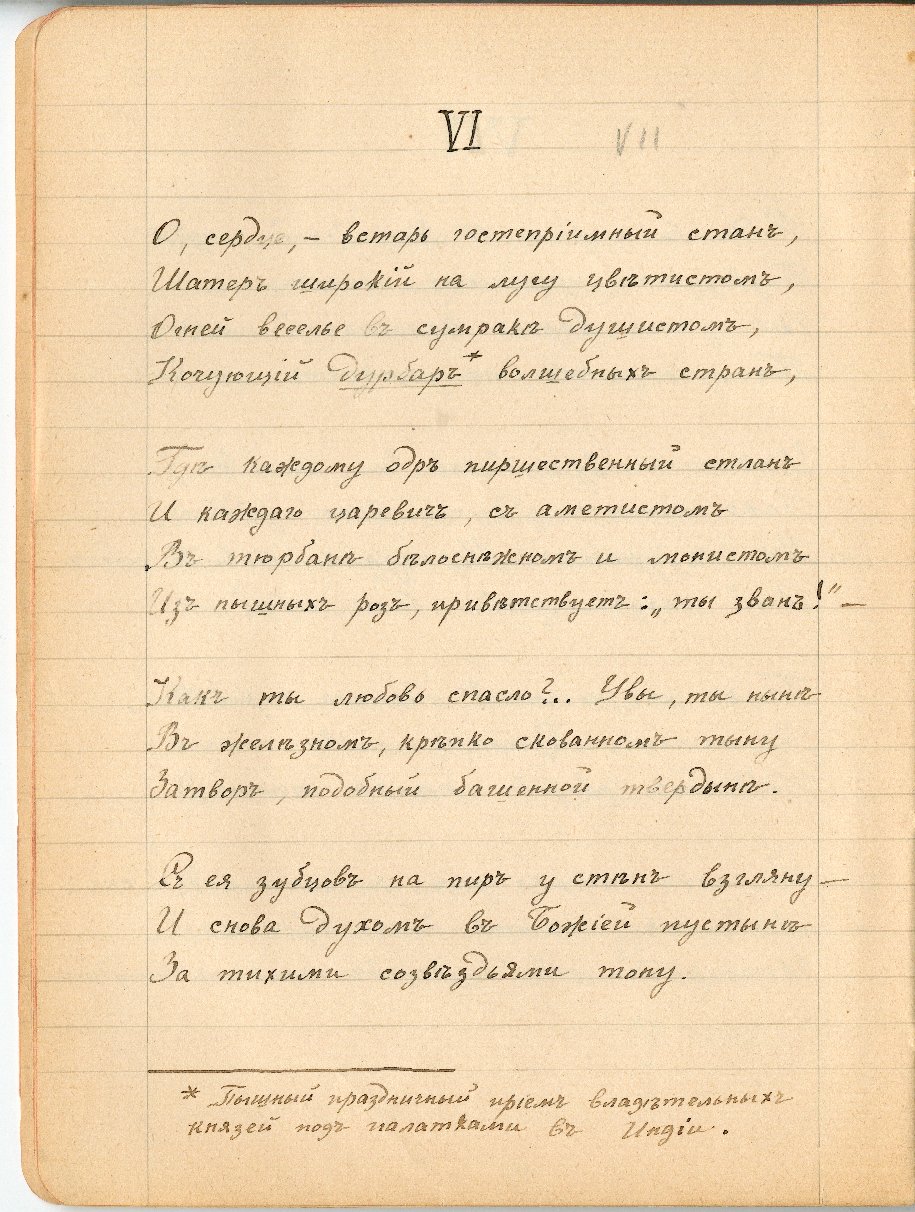 VI VII
О, сердце, – встарь гостепріимный станъ,
Шатеръ широкій на лугу цвѣтистомъ,
Огней веселье въ сумракѣ душистомъ,
Кочующій дурбаръ* волшебныхъ странъ,
Гдѣ каждому одръ пиршественный стланъ
И каждаго царевичъ, съ аметистомъ
Въ тюрбанѣ бѣлоснѣжномъ и монистомъ
Изъ пышныхъ розъ, привѣтствуетъ: „ты званъ!" –
Какъ ты любовь спасло?.. Увы, ты нынѣ
Въ желѣзномъ, крѣпко скованномъ тыну
Затворъ, подобный башенной твердынѣ.
Съ ея зубцовъ на пиръ у стѣнъ взгляну –
И снова духомъ въ Божіей пустынѣ
За тихими созвѣздьями тону.
* Пышный праздничный пріемъ владѣтельныхъ
князей подъ палатками въ Индіи.